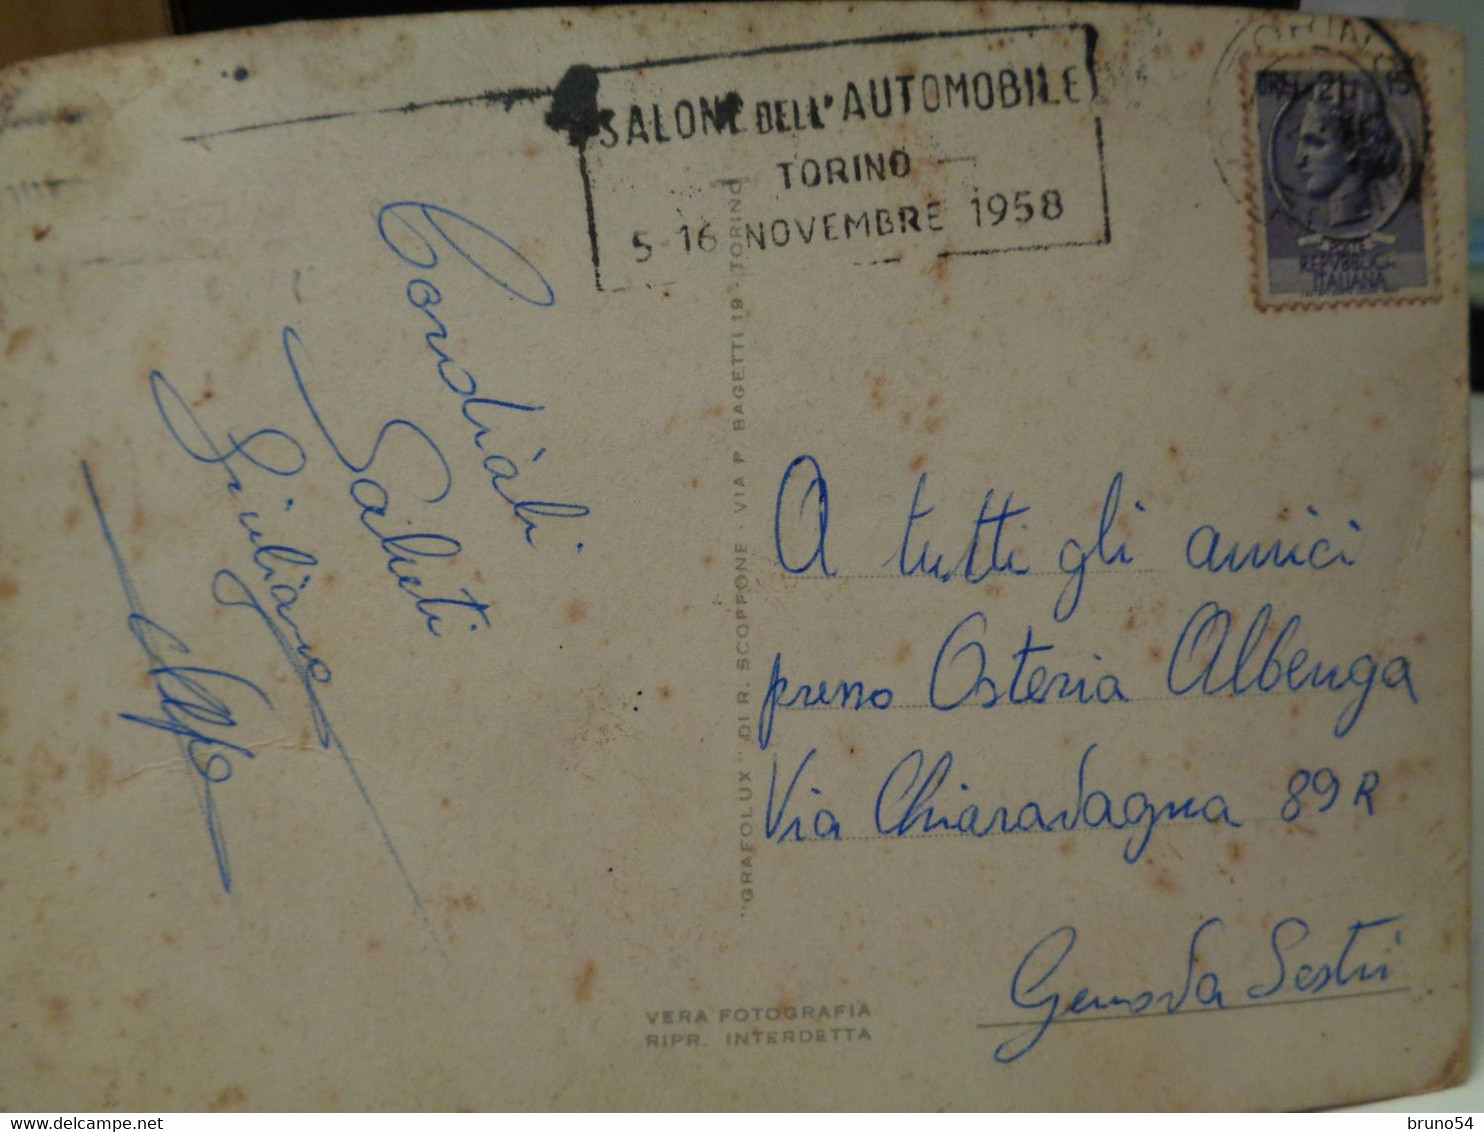 SALONE DELL'AUTOMOBILE
TORINO
5-16 NOVEMBRE 1958
TORINO
ORE 21 15
POSTE
REPVBBLICA
ITALIANA
Cordiali
Saluti
Giuliano
"GRAFOLUX" DI R. SCOFFONE - VIA P. BAGETTI 19 - TORINO
A tutti gli amici
presso Osteria Albenga
Via Chiaravagna 89 R
Genova Sestri
VERA FOTOGRAFIA
RIPR. INTERDETTA
bruno54